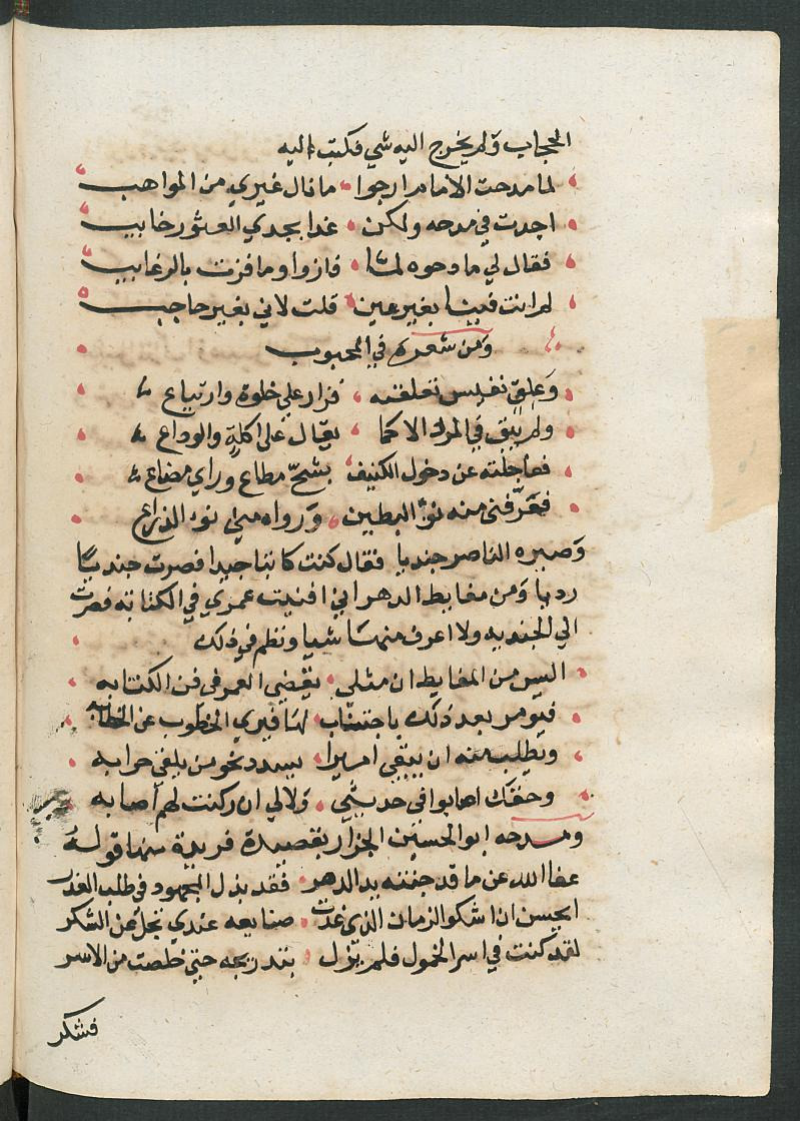 الحجاب ولم يخرج اليه شي فكتب اليه
لما مدحت الامام ارجوا ما نال غيري من المواهب
اجدت في مدحه ولكن غدا بجدي العثور خايب
فقال لي مادحوه لما فازوا وما فزت بالرغايب
لم انت فينا بغير عين قلت لاني بغير حاجب
ومن شعره في المحبوب
وعلق نفيس تعلقته فزار علي خلوة وارتياع
ولم يبق في المرد الا كما يقال على اكلة والوداع
فعاجلته عن دخول الكنيف بشح مطاع وراي مضاع
فغرقني منه نوء البطين ورواه مني نوء الذراع
وصيره الناصر جنديا فقال كنت كاتبا جيدا فصرت جنديا
رديا ومن مغايظ الدهر اني افنيت عمري في الكتابه فصرت
الي الجنديه ولا اعرف منها شيا ونظم في ذلك
اليس من المغايظ ان مثلي يقضي العمر في فن الكتابه
فيومر بعد ذلك باجتناب لها فيري الخطوب عن الخطابه
ويطلب منه ان يبقي اميرا يسدد نحو من يلقي حرابه
وحقك اصابوا في حديثي ولا لي ان ركنت لهم اصابه
ومدحه ابو الحسين الجزار بقصيدة فريدة منها قوله
عفا الله عن ما قد جنته يد الدهر فقد بذل المجهود في طلب العذر
ايحسن ان اشكو الزمان الذي غدت صنايعه عندي تجل عن الشكر
لقد كنت في اسر الخمول فلم يزل بتدريجه حتي خلصت من الاسر
فشكر